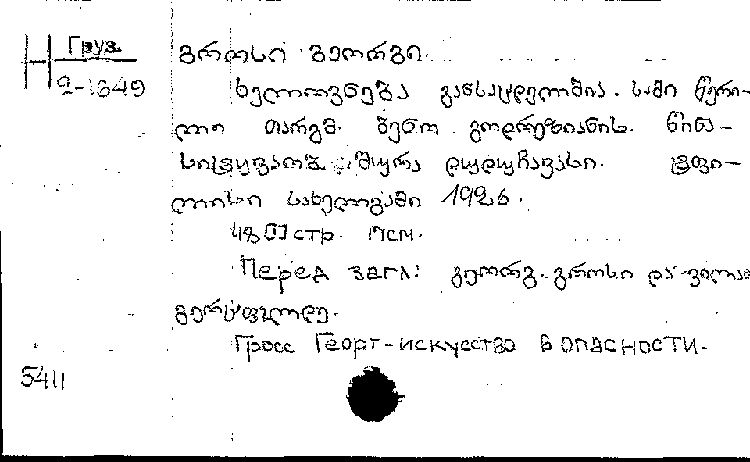 Н Груз.
2-1649
გროსი გეორგი.
ხელოვნება განსაცდელშია. სამი წერი-
ლი თარგმ. ბენო გორდეზიანის. წინა-
სიტყვაობა შიურა დუდუჩავასი. ტფი-
ლისი სახელგამი 1926.
стр. 17см.
Перед загл: გეორგ. გროსი და ვილანდ
გერცფელდე.
Гросс Георг-искусство в опасности.
5411